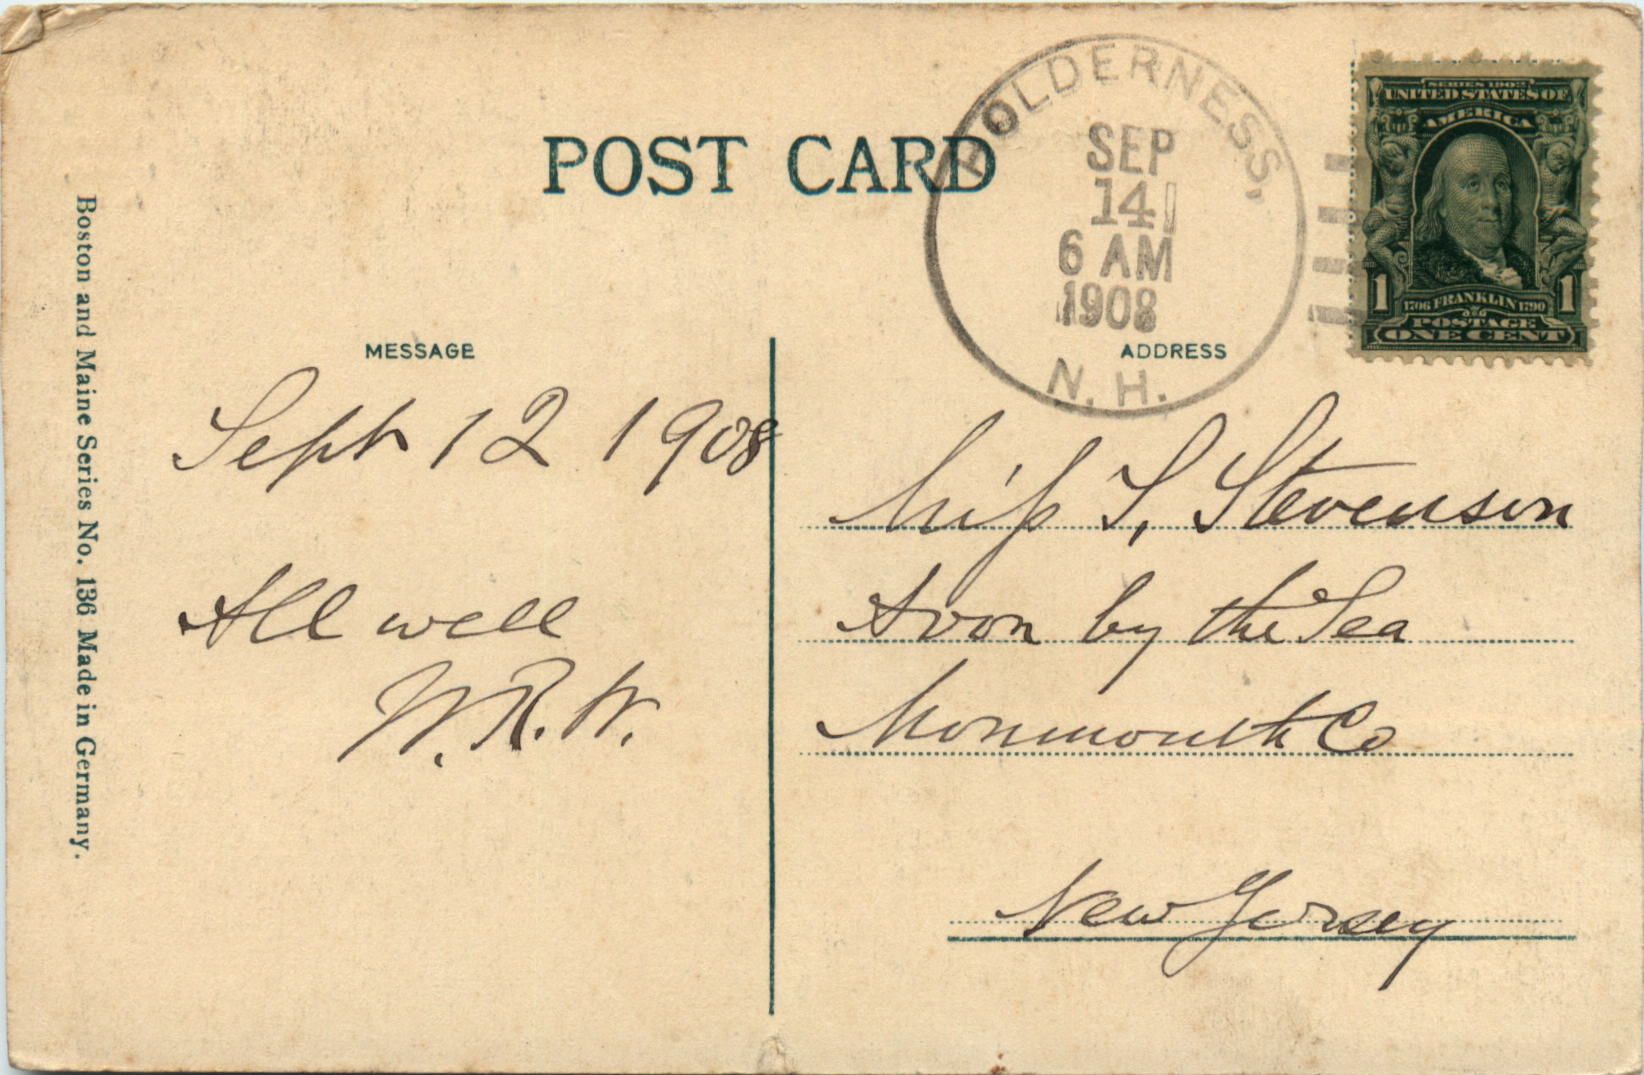 POST CARD
HOLDERNESS,
SEP
14
6 AM
1908
N. H.
SERIES 1902
UNITED STATES OF
AMERICA
1706 FRANKLIN 1790
1 1
POSTAGE
ONE CENT
Boston and Maine Series No. 136 Made in Germany.
MESSAGE
Sept 12 1908
All well
W. R. W.
ADDRESS
Miss S. Stevenson
Avon by the Sea
Monmouth Co
New Jersey